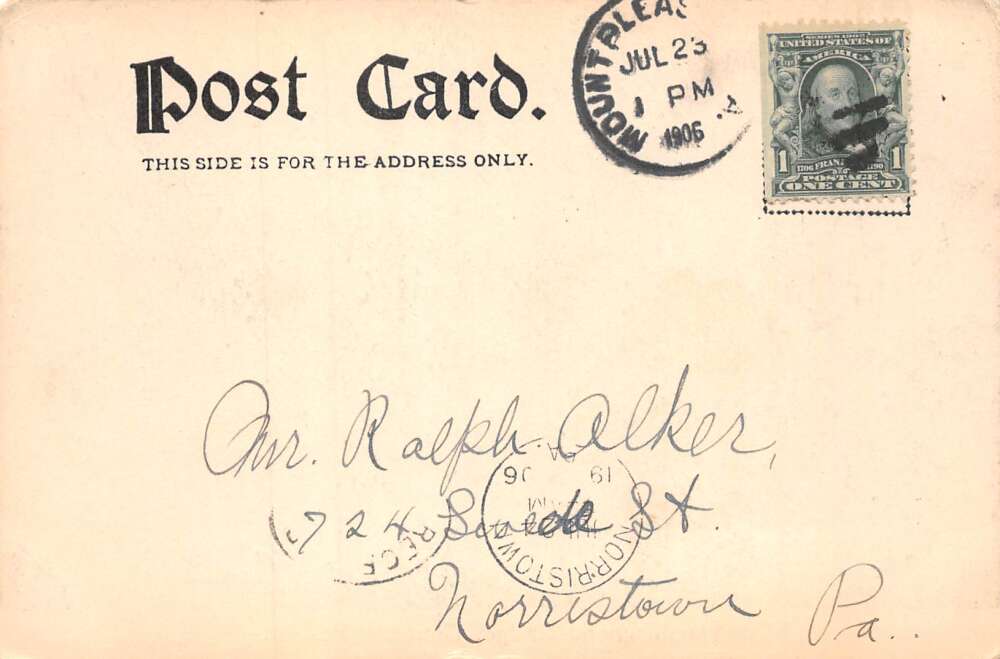 Post Card.
THIS SIDE IS FOR THE ADDRESS ONLY.
MOUNT PLEAS
JUL 23
1 PM
1906
SERIES 1902
UNITED STATES OF
AMERICA
1 1
1706 FRANKLIN 1790
POSTAGE
ONE CENT
Mr. Ralph Alker,
724 St.
Norristown Pa.
NORRISTOWN
PA
19 06
REC'